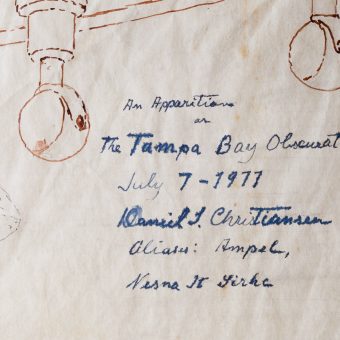 An Apparition
or
The Tampa Bay Obscurat
July 7-1977
Daniel S. Christiansen
Aliases: Ampel,
Vesna It Sirhc